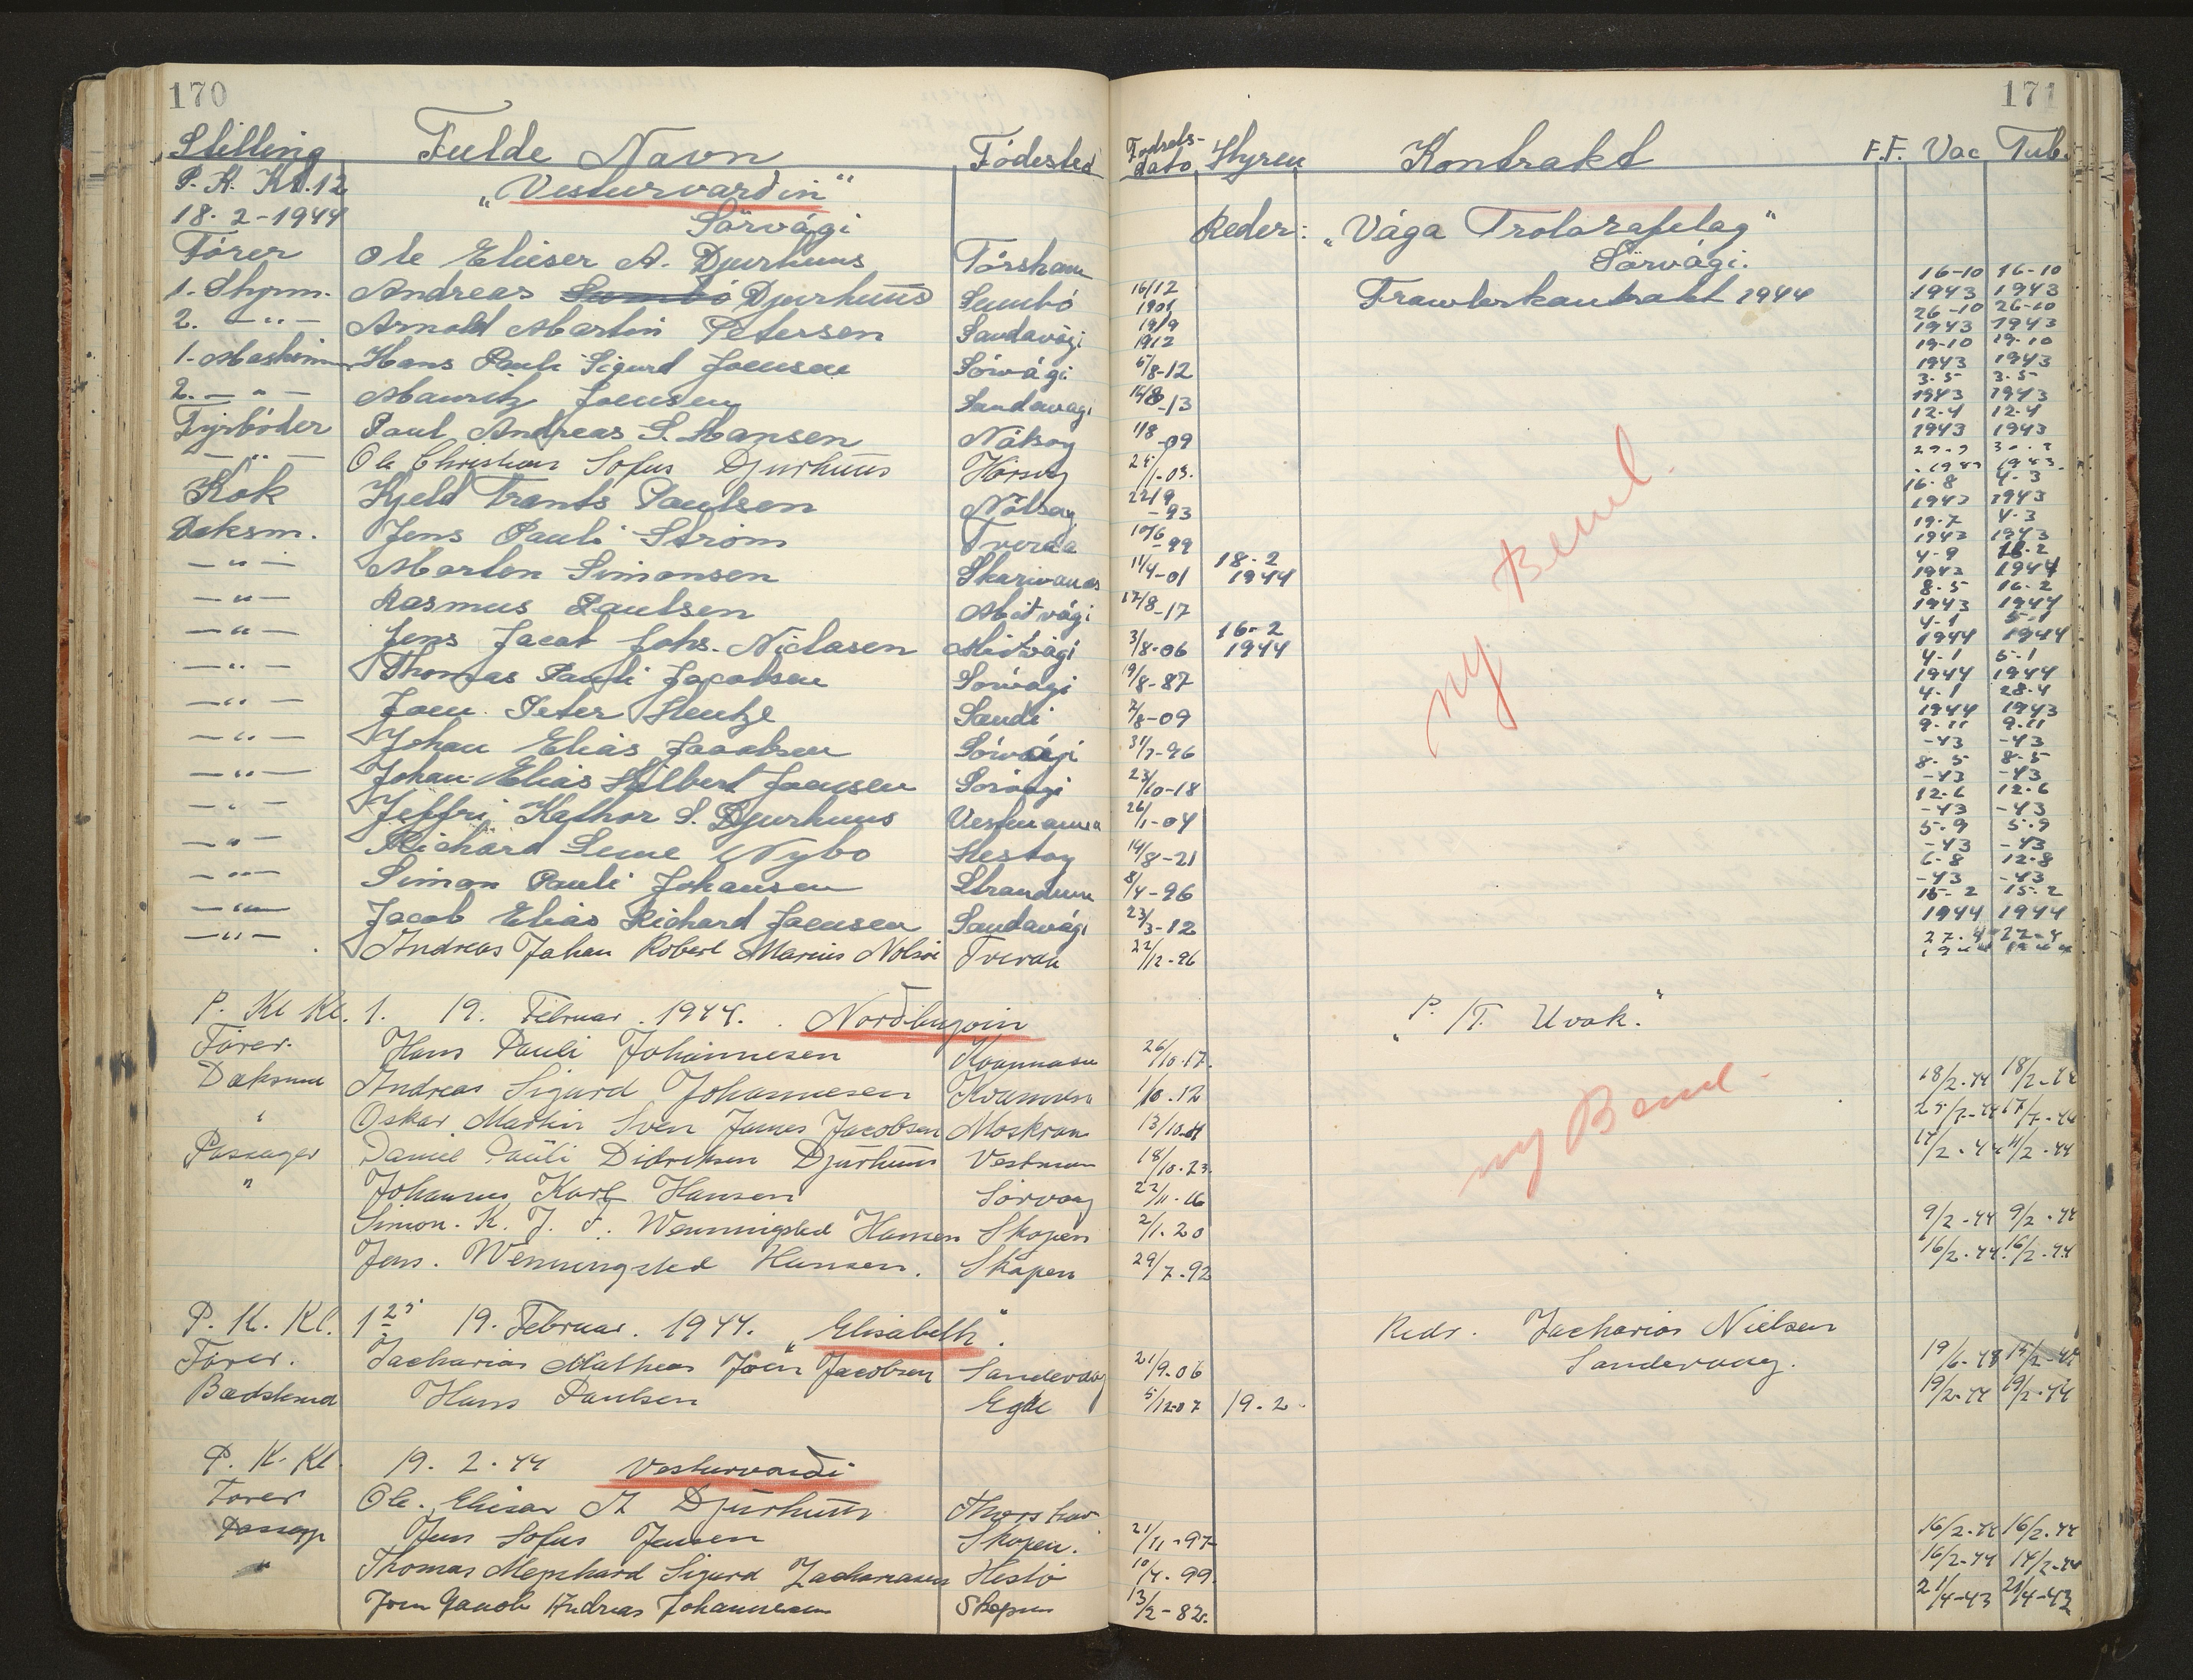 170
171
Stilling Fulde Navn Födested Födsels-dato Hyren Kontrakt F.F. Vac Tub.
P. K. Kl. 12 „Vesturvarðin“
18. 2 - 1944 Sörvági Reder: „Vága Trolarafelag“
Förer Ole Elieser A. Djurhuus Tórshavn Sörvági.
16-10 16-10
1. Styrm. Andreas Sumbö Djurhuus Sumbö 16/12 1901 Trawlerkontrakt 1944 1943 1943
26-10 26-10
2. —"— Arnold Martin Petersen Sandavági 19/9 1912 1943 1943
19-10 19-10
1. Maskin Hans Pauli Sigurd Joensen Sörvági 6/8-12 1943 1943
3.5 3.5
2. —"— Mauritz Joensen Sandavagi 14/8-13 1943 1943
12.4 12.4
Fyrböder Paul Andreas S. Hansen Nólsoy 1/8-09 1943 1943
—"— Ole Christian Sofus Djurhuus
Kok Kjeld Trants Poulsen Nólsoy 22/9-93 16.8 4.3
1943 1943
Deksm. Jens Pauli Ström Tveraa 10/6-99 19.7 4.3
1943 1943
—"— Morten Simonsen Skarvanes 11/4-01 18.2 1944 4-9 18.2
1943 1944
—"— Rasmus Paulsen Miðvági 17/8-17 8.5 16.2
1943 1944
—"— Jens Jacob Johs. Niclasen Miðvági 3/8-06 16-2 1944 4-1 5-1
1944 1944
—"— Thomas Pauli Jacobsen Sörvági 19/8-87 4.1 5.1
1944 1944
—"— Joen Peter Hentze Sandi 7/8-09 4.1 28.4
1944 1943
—"— Johan Elias Jacobsen Sörvági 31/7-96 9.11 9.11
-43 -43
—"— Johan Elias Hilbert Joensen Sörvági 23/10-18 8.5 8.5
-43 -43
—"— Jeffri Kathor S. Djurhuus Vestmanna 26/1-04 12.6 12.6
-43 -43
—"— Richard Lume Nybo Hestoy 14/8-21 5.9 5.9
-43 -43
—"— Simon Pauli Johansen 8/4-96 6-8 12.8
-43 -43
—"— Jacob Elias Richard Joensen Sandavági 23/3-12 15-2 15.2
1944 1944
—"— Andreas Johan Robert Marius Nolsöe Tveraa 22/12-96
ny Beml.
P. Kl Kl. 1. 19. Februar. 1944. Norðbugvin „P./T. Uvak.“
Förer. Hans Pauli Johannesen 26/10.17.
Deksmd Andreas Sigurd Johannesen 1/10.12 18/2-44
" Oskar Martin Sven James Jacobsen Moskran
Passager Daniel Pauli Didriksen Djurhuus Vestman 18/10.23
" Johannes Karl Hansen Sörvaag 22/11.16
Simon. K. J. F. Wenningsted Hansen Skopen 2/1.20 9/2-44 9/2-44
Jens. Wenningsted Hansen. Skopen 29/7-92 16/2-44 16/2-44
ny Beml.
P. K. Kl. 1 25 19. Februar. 1944. „Elisabeth“. Redr. Zacharias Nielsen
Förer. Zacharias Mathias Joen Jacobsen Sandevaag 21/9.06 Sandevaag.
Bedstemd Hans Paulsen Egde 5/12-07 19.2 19/2-44 19/2-44
P. K. Kl 19. 2. 44 Vesturvardi
Förer Ole. Elieser A Djurhuus Thorshav
Passagr Jens Sofus Jensen Skopen. 21/11-97 16/2-44 16/2.44
" Thomas Sigurd Zachariasen Hestö 10/4-99 16/2-44 14/2-44
Joen Jacob Andreas Johannesen Skopen 13/2-82. 21/4-43 21/4-43